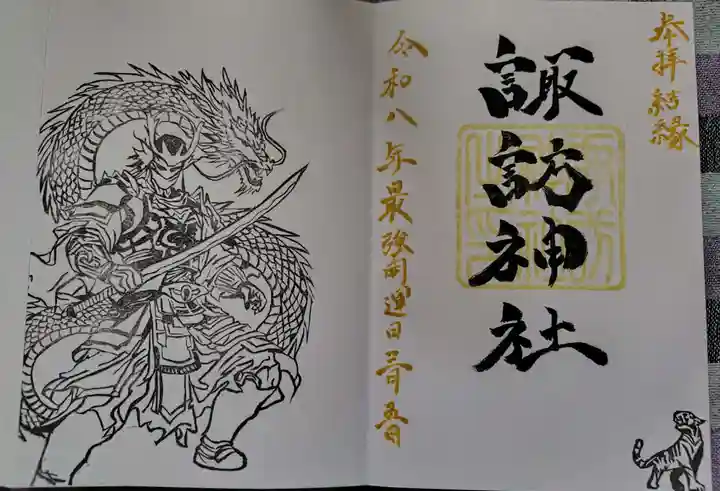 奉拝 結縁
諏訪神社
令和八年最強開運日三月五日